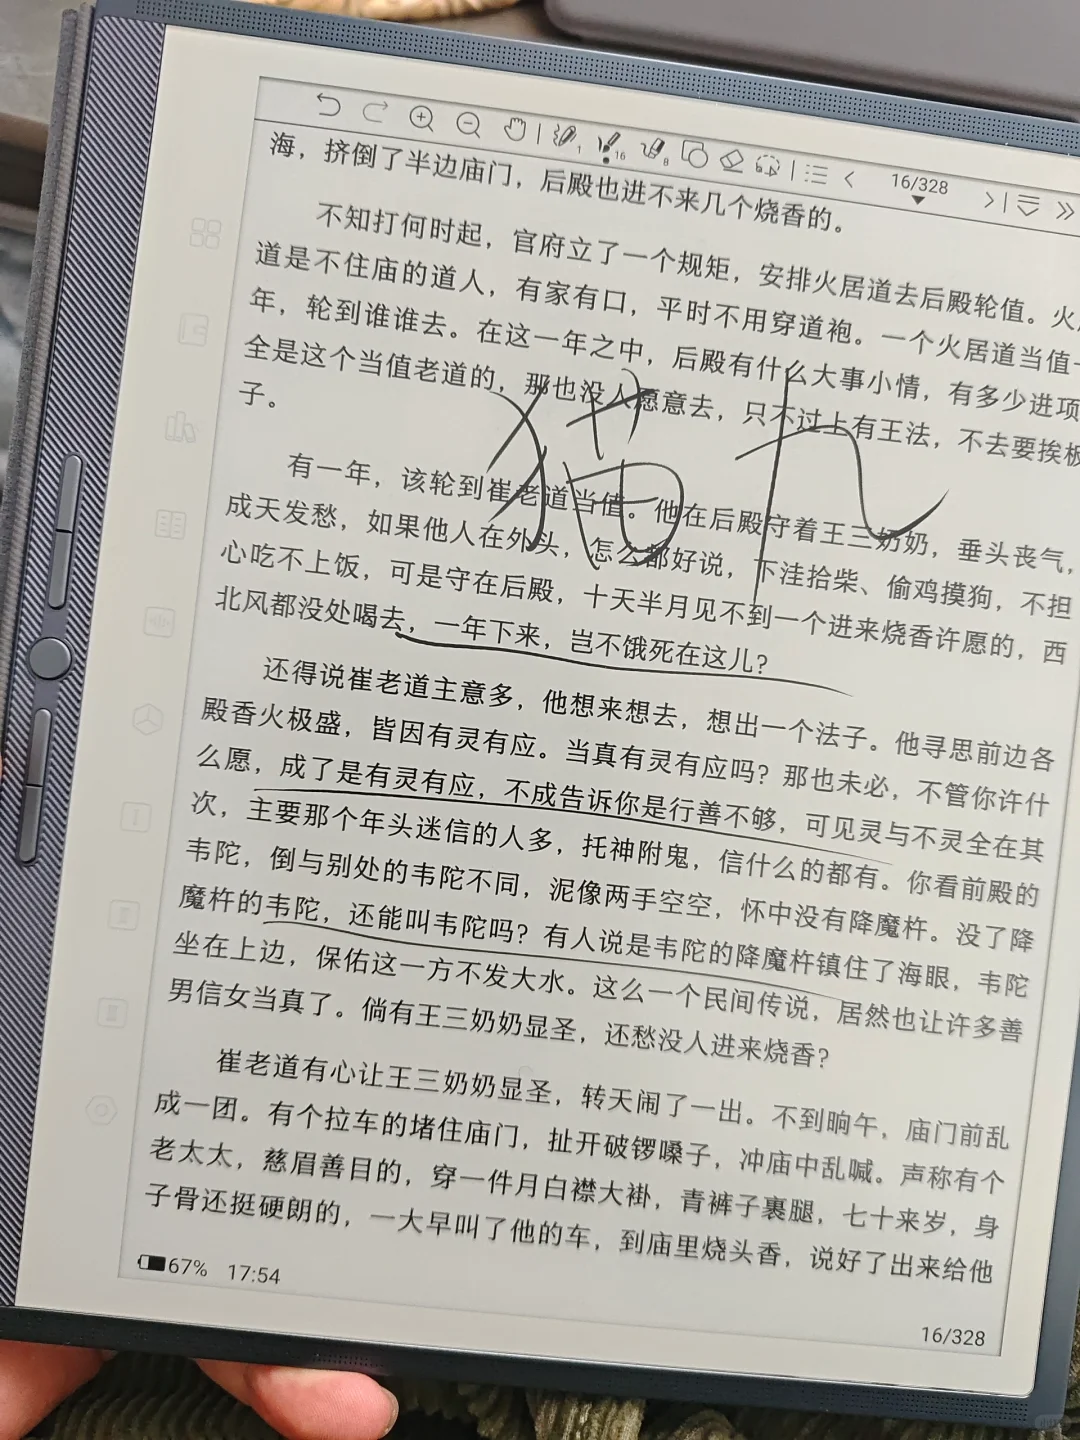 16/328
海，挤倒了半边庙门，后殿也进不来几个烧香的。
不知打何时起，官府立了一个规矩，安排火居道去后殿轮值。火
道是不住庙的道人，有家有口，平时不用穿道袍。一个火居道当值
年，轮到谁谁去。在这一年之中，后殿有什么大事小情，有多少进项
全是这个当值老道的，那也没人愿意去，只不过上有王法，不去要挨板
子。
猫九
有一年，该轮到崔老道当值。他在后殿守着王三奶奶，垂头丧气，
成天发愁，如果他人在外头，怎么都好说，下洼拾柴、偷鸡摸狗，不担
心吃不上饭，可是守在后殿，十天半月见不到一个进来烧香许愿的，西
北风都没处喝去，一年下来，岂不饿死在这儿？
还得说崔老道主意多，他想来想去，想出一个法子。他寻思前边各
殿香火极盛，皆因有灵有应。当真有灵有应吗？那也未必，不管你许什
么愿，成了是有灵有应，不成告诉你是行善不够，可见灵与不灵全在其
次，主要那个年头迷信的人多，托神附鬼，信什么的都有。你看前殿的
韦陀，倒与别处的韦陀不同，泥像两手空空，怀中没有降魔杵。没了降
魔杵的韦陀，还能叫韦陀吗？有人说是韦陀的降魔杵镇住了海眼，韦陀
坐在上边，保佑这一方不发大水。这么一个民间传说，居然也让许多善
男信女当真了。倘有王三奶奶显圣，还愁没人进来烧香？
崔老道有心让王三奶奶显圣，转天闹了一出。不到晌午，庙门前乱
成一团。有个拉车的堵住庙门，扯开破锣嗓子，冲庙中乱喊。声称有个
老太太，慈眉善目的，穿一件月白襟大褂，青裤子裹腿，七十来岁，身
子骨还挺硬朗的，一大早叫了他的车，到庙里烧头香，说好了出来给他
67% 17:54
16/328